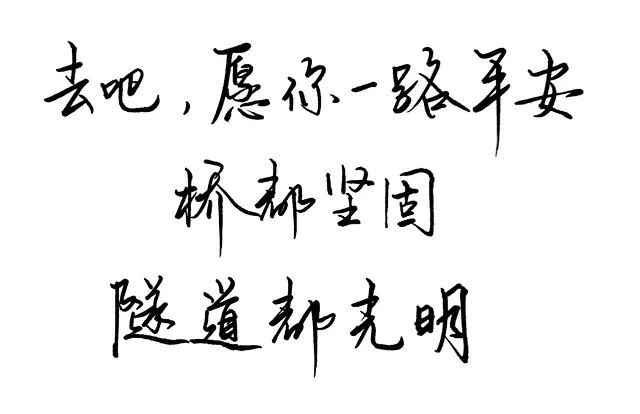 去吧，愿你一路平安
桥都坚固
隧道都光明